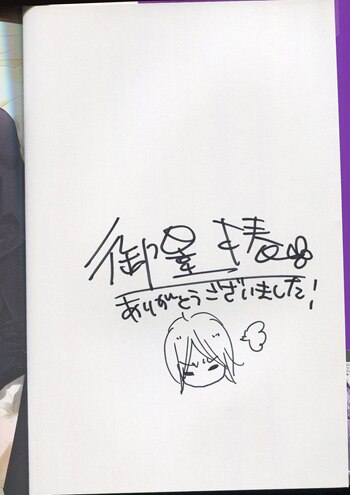 御星椿
ありがとうございました!